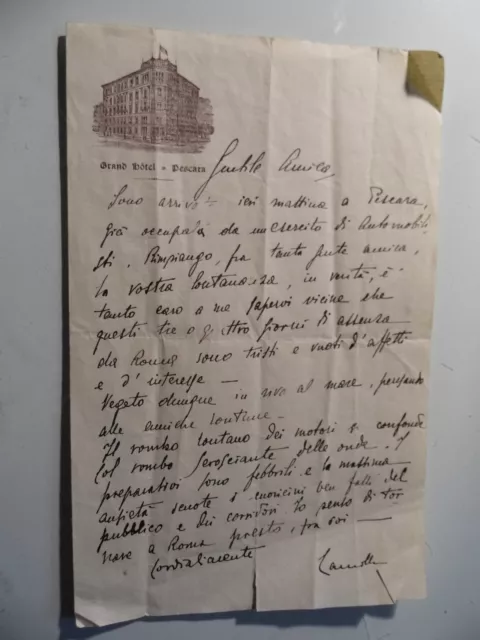 Grand Hôtel - Pescara
Gentile Amica,
Sono arrivato ieri mattina a Pescara,
già occupata da un esercito di Automobili
sti. Rimpiango, fra tanta gente amica,
la vostra lontananza, in verità, è
tanto caro a me sapervi vicina che
questi tre o quattro giorni di assenza
da Roma sono tristi e vuoti d'affetti
e d'interesse —
Vegeto dunque in riva al mare, pensando
alle amiche lontane —
Il rombo lontano dei motori si confonde
col rombo scrosciante delle onde. I
preparativi sono febbrili e la massima
ansietà scuote i cuoricini ben fatti del
pubblico e dei corridori. Io penso di tor
nare a Roma presto, fra voi —
Cordialmente